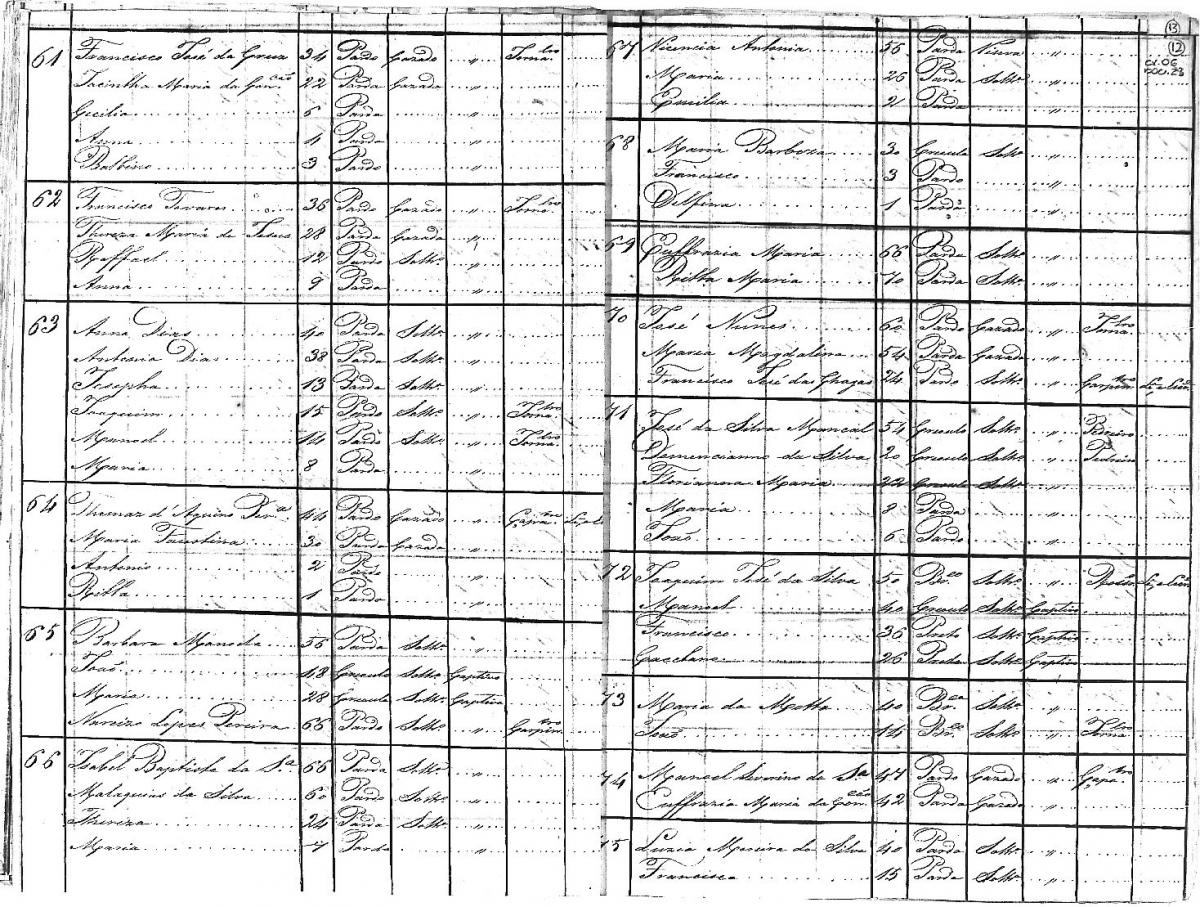 61 Francisco José da Cruz 34 Pardo Cazado " Jorna.lro
Jacintha Maria da Con.cão 22 Parda Cazada "
Cecilia 6 Parda "
Anna 4 Parda "
Balbino 3 Pardo "
62 Francisco Tavares 36 Pardo Cazado " Jorna.lro
Thereza Maria de Jesus 28 Parda Cazada "
Raffael 12 Pardo Soltr.o "
Anna 9 Parda "
63 Anna Dias 40 Parda Soltr.a "
Antonia Dias 38 Parda Soltr.a "
Josepha 13 Parda Soltr.a "
Joaquim 15 Pardo Soltr.o " Jorna.lro
Manoel 14 Pardo Soltr.o " Jorna.lro
Maria 8 Parda "
64 Thomaz d'Aquino 44 Pardo Cazado "
Maria Faustina 30 Parda Cazada "
Antonio 2 Pardo "
Ritta 1 Parda "
65 Barbara Manoela 56 Parda Soltr.a "
João 18 Creoulo Soltr.o Captivo
Maria 28 Creoula Soltr.a Captiva
Narcizo Lopes Pereira 66 Pardo Soltr.o " Carpin.tro
66 Izabel Baptista da S.a 66 Parda Soltr.a "
Malaquias da Silva 60 Pardo Soltr.o "
Thereza 24 Parda Soltr.a "
Maria 7 Parda "
13
12
CX.06
DOC.23
67 Vicencia Antonia 56 Parda Viuva "
Maria 26 Parda Soltr.a "
Emilia 2 Parda "
68 Maria Barboza 30 Creoula Soltr.a "
Francisco 3 Pardo "
Delfina 1 Parda "
69 Euffrazia Maria 66 Parda Soltr.a "
Ritta Maria 70 Parda Soltr.a "
70 José Nunes 60 Pardo Cazado " Jorna.lro
Maria Magdalena 54 Parda Cazada "
Francisco José das Chagas 24 Pardo Soltr.o " Carpin.tro
71 José da Silva Manoel 54 Creoulo Soltr.o "
Demencianno da Silva 20 Creoulo Soltr.o " Pedreiro
Florianna Maria 22 Creoula Soltr.a "
Maria 8 Parda "
João 6 Pardo "
72 Joaquim José da Silva 50 Br.co Soltr.o "
Manoel 40 Creoulo Soltr.o Captivo
Francisco 36 Preto Soltr.o Captivo
Caetana 26 Preta Soltr.a Captiva
73 Maria da Motta 40 Br.ca Soltr.a "
João 14 Br.co Soltr.o " Jorna.lro
74 Manoel Severino da S.a 47 Pardo Cazado "
Euffrazia Maria da Con.cão 42 Parda Cazada "
75 Luzia Moreira da Silva 40 Parda Soltr.a "
Francisca 15 Parda Soltr.a "